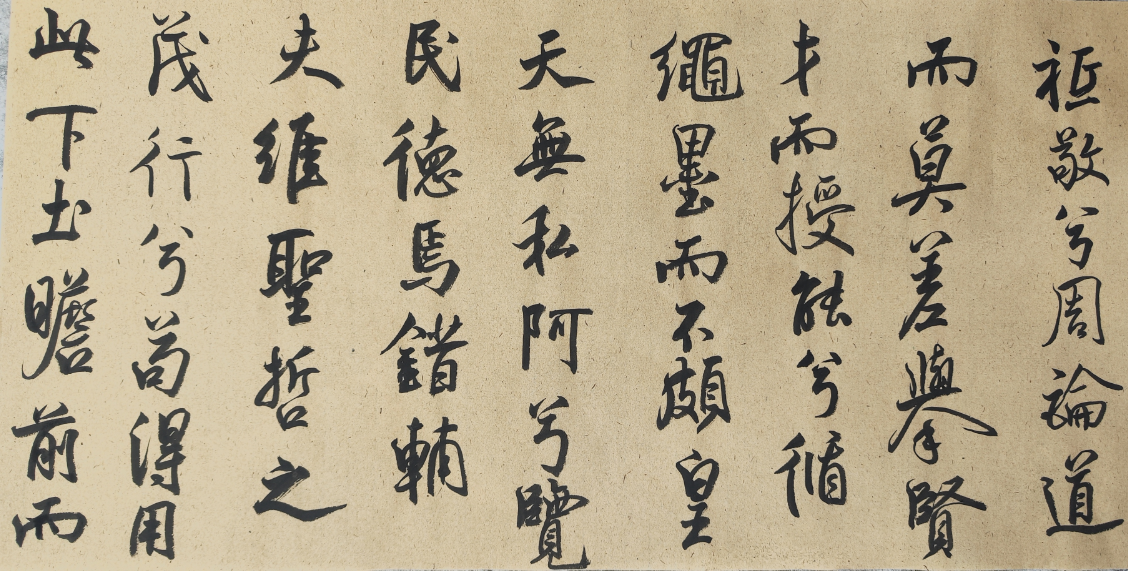 祗敬兮周論道
而莫差舉賢
才而授能兮循
繩墨而不頗皇
天無私阿兮覽
民德焉錯輔
夫維聖哲之
茂行兮苟得用
此下土瞻前而